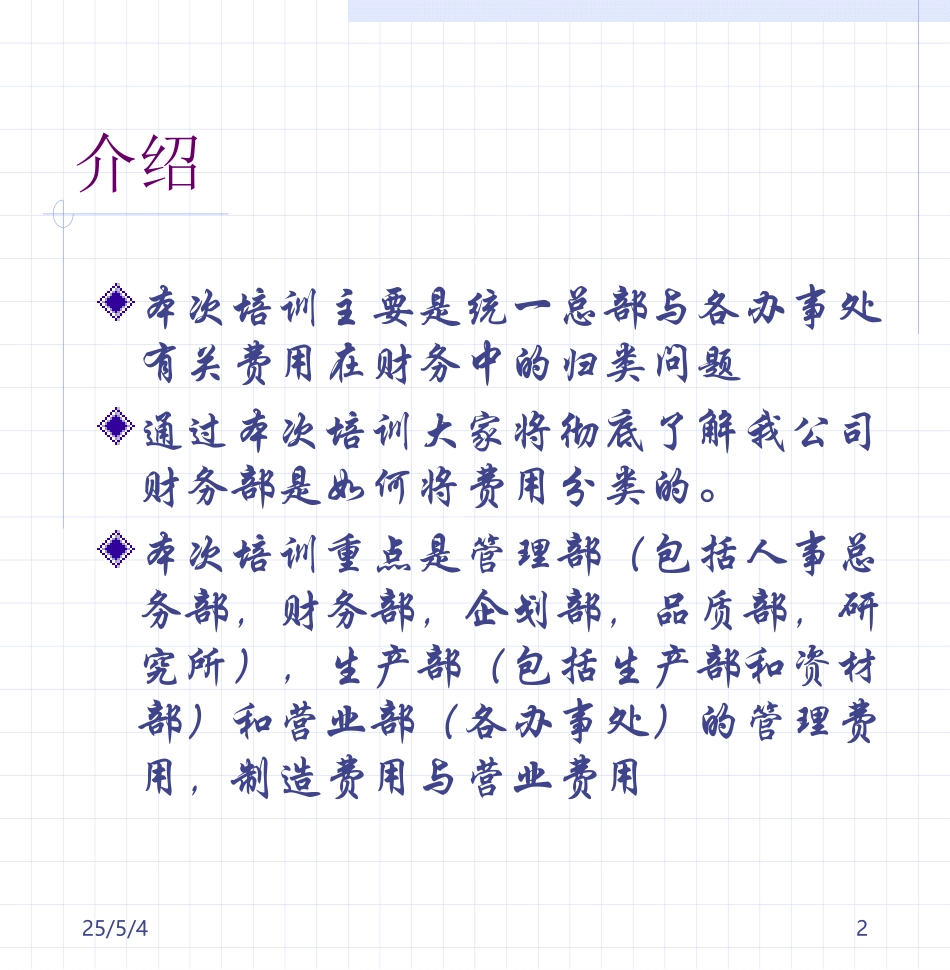 介绍
本次培训主要是统一总部与各办事处
有关费用在财务中的归类问题
通过本次培训大家将彻底了解我公司
财务部是如何将费用分类的。
本次培训重点是管理部（包括人事总
务部，财务部，企划部，品质部，研
究所），生产部（包括生产部和资材
部）和营业部（各办事处）的管理费
用，制造费用与营业费用
25/5/4
2